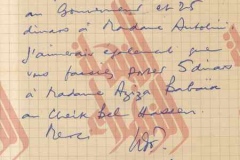 au Gouvernement et 25
dinars à Madame Antolini
J'aimerais également que
vous fassiez porter 5 dinars
à Madame Aziza
au Cheik Bel Hassen
Merci